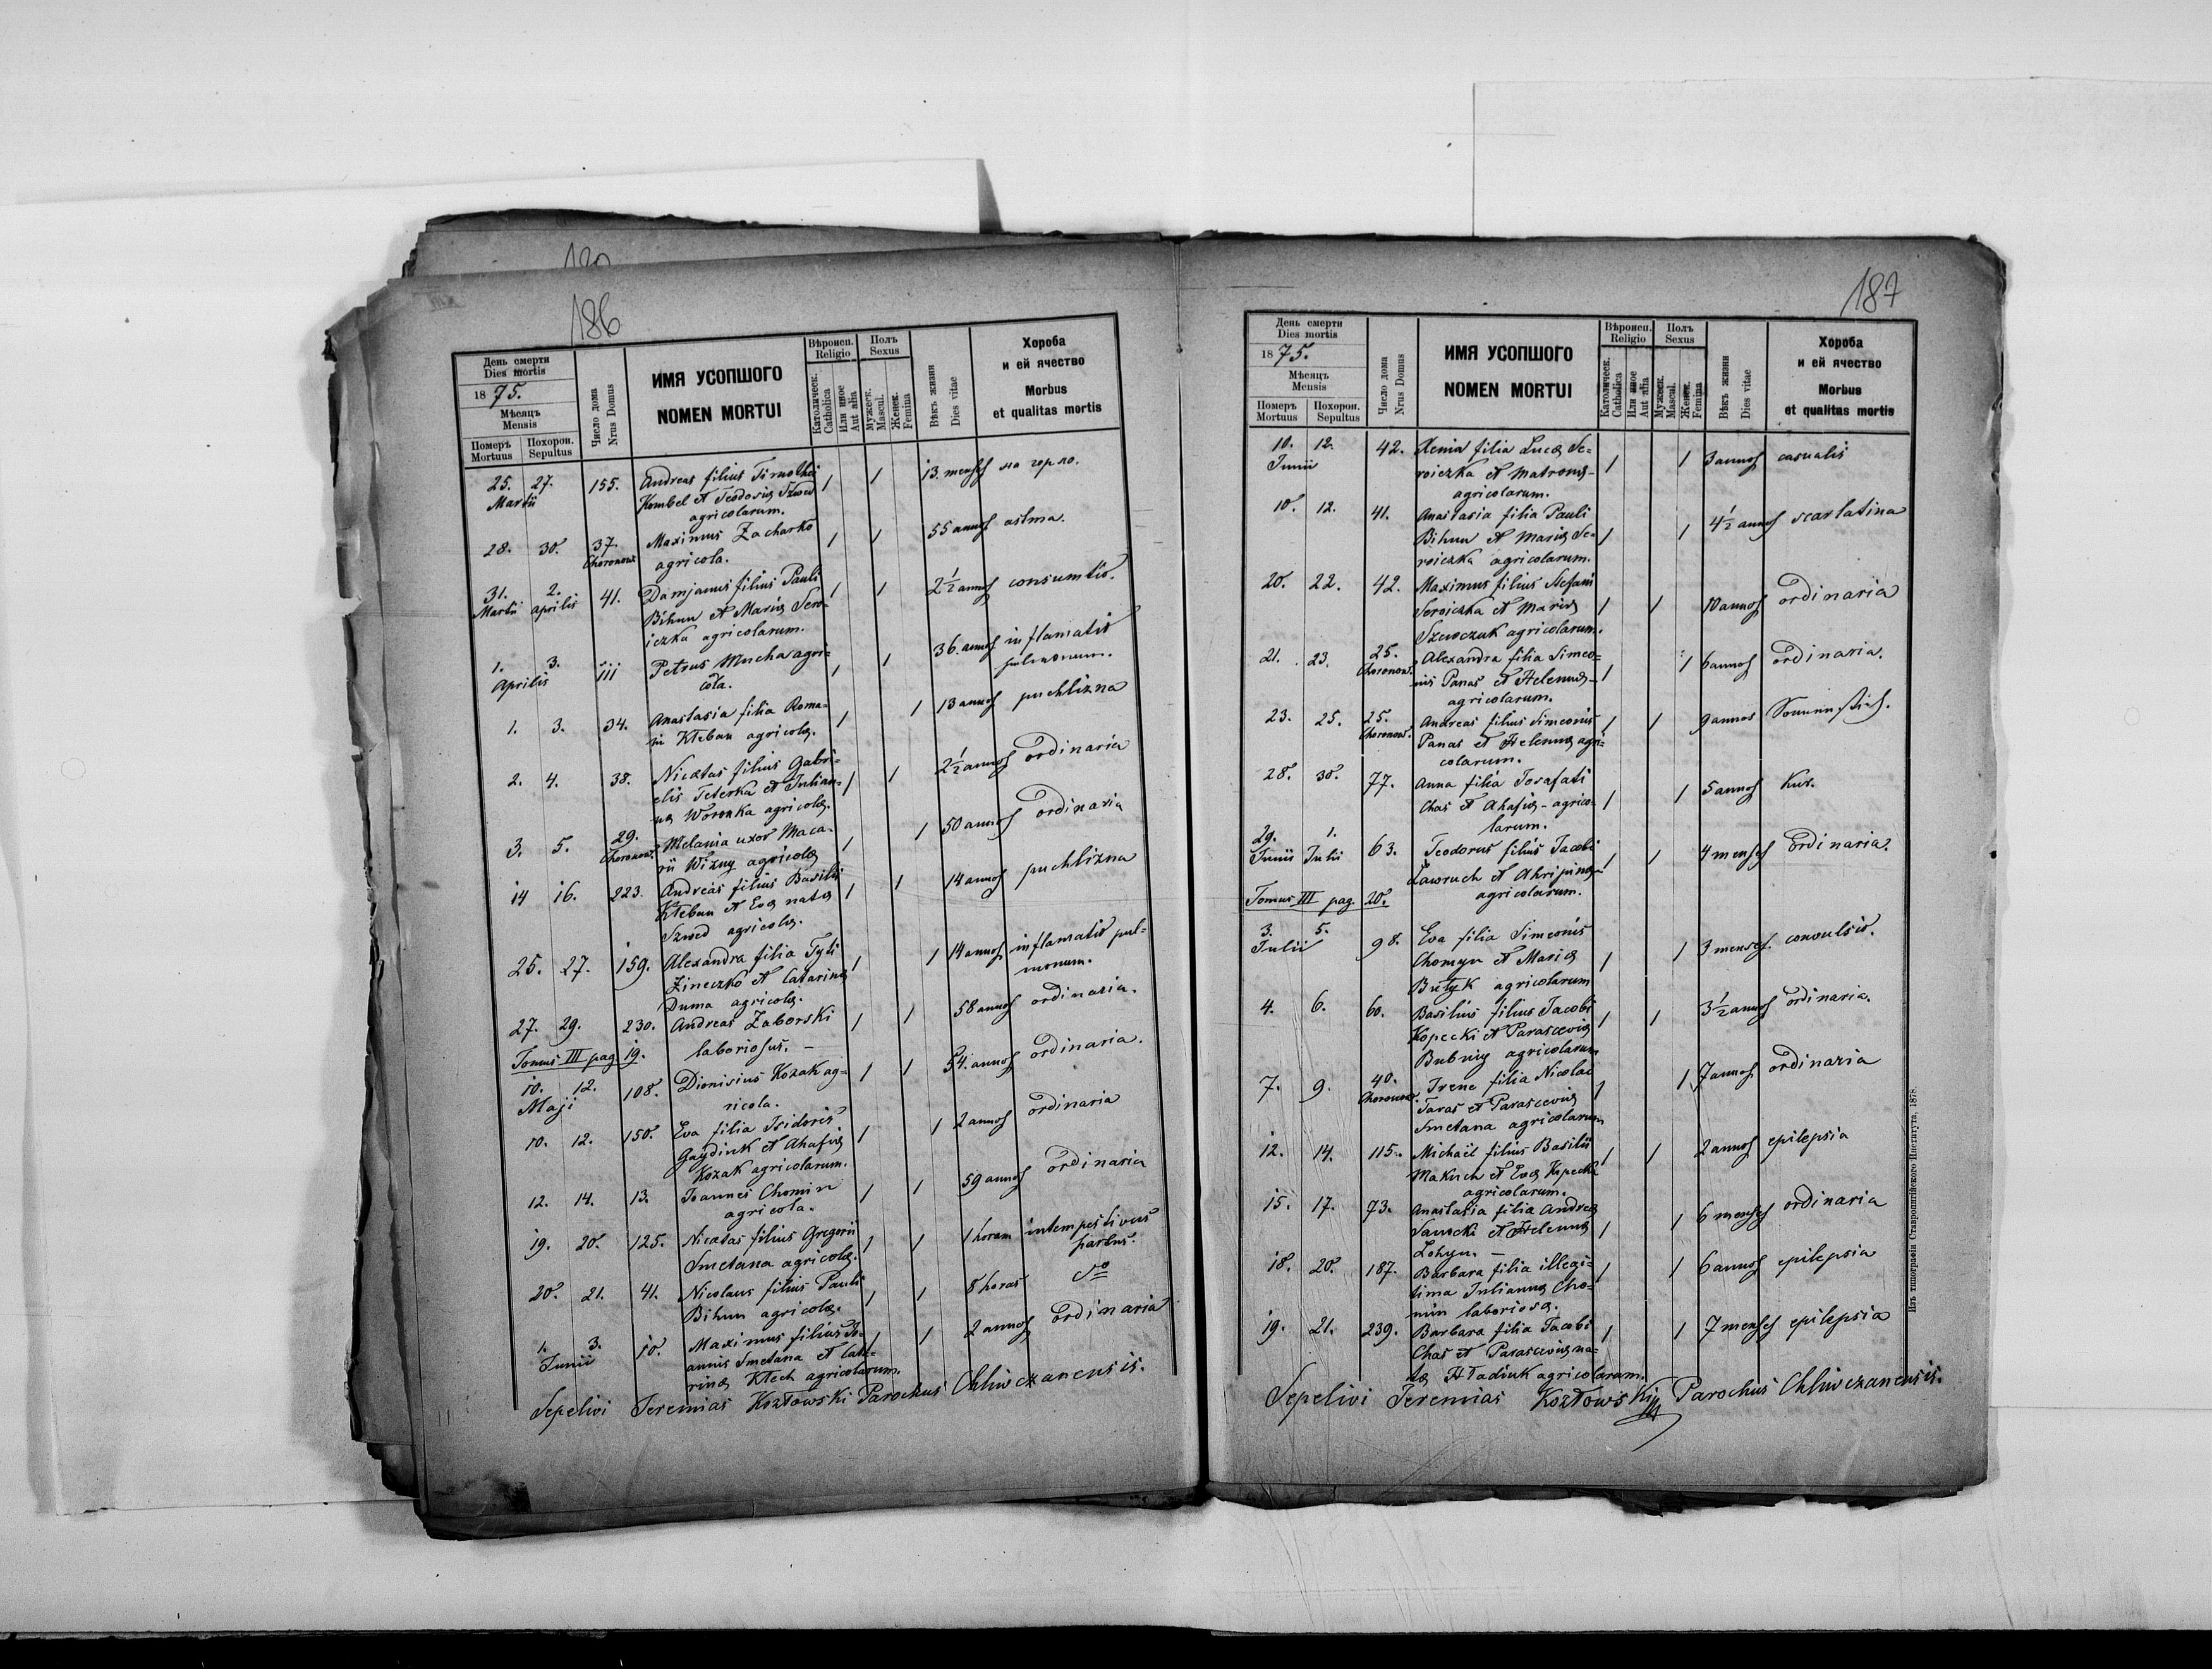 186
День смерти
Dies mortis
1875.
Мѣсяцъ
Mensis
Померъ Похорон.
Mortuus Sepultus
Число дома
Nrus Domus
ИМЯ УСОПШОГО
NOMEN MORTUI
Вѣроисп.
Religio
Католическ.
Catholica
Или иное
Aut alia
Полъ
Sexus
Мужеск.
Mascul.
Женск.
Femina
Вѣкъ жизни
Dies vitae
Хороба
и ей ячество
Morbus
et qualitas mortis
25. 27. 155. Andreas filius Timothei 1 1 13 menses на горло.
Martii Kombel et Teodosiæ Szwed
agricolarum.
28. 30. 37. Maximus Zacharko 1 1 55 annos astma.
Choronow. agricola.
31. 2. 41. Damjanus filius Pauli 1 1 2½ annos consumtio.
Martii Aprilis Bihun et Mariæ Sero-
iczka agricolarum.
1. 3. 111 Petrus Mucha agri- 1 1 36. annos inflamatio
Aprilis cola. pulmonum.
1. 3. 34. Anastasia filia Roma- 1 1 13 annos puchlizna
ni Kłeban agricolæ.
2. 4. 38. Nicetas filius Gabri- 1 1 2½ annos ordinaria
elis Teterka et Julian-
næ Woronka agricolæ.
3. 5. 29. Melania uxor Maca- 1 1 50 annos ordinaria
Choronow. rii Wizny agricolæ
14 16. 223. Andreas filius Basilii 1 1 14 annos puchlizna
Kłeban et Evæ natæ
Szwed agricolæ.
25. 27. 159. Alexandra filia Tyti 1 1 14 annos inflamatio pul-
Zineczko et Catarinæ monum.
Duma agricolæ.
27. 29. 230. Andreas Zaborski 1 1 58 annos ordinaria.
Tomus III pag. 19. laboriosus. –
10. 12. 108. Dionisius Kozak ag- 1 1 54. annos ordinaria.
Maji ricola.
10. 12. 150. Eva filia Isidoris 1 1 2 annos ordinaria
Gaydiuk et Ahafiæ
Kozak agricolarum.
12. 14. 13. Joannes Chomin 1 1 59 annos ordinaria
agricola.
19. 20. 125. Nicetas filius Gregorii 1 1 1 horam intempestivus
Smetana agricolæ. partus.
20. 21. 41. Nicolaus filius Pauli 1 1 8 horas
Bihun agricolæ.
1. 3. 10. Maximus filius Jo- 1 1 2 annos ordinaria
Junii annis Smetana et Cata-
rinæ Kłech agricolarum.
Sepelivi Jeremias Kozłowski Parochus Chliwczanensis.
187
День смерти
Dies mortis
1875.
Мѣсяцъ
Mensis
Померъ Похорон.
Mortuus Sepultus
Число дома
Nrus Domus
ИМЯ УСОПШОГО
NOMEN MORTUI
Вѣроисп.
Religio
Католическ.
Catholica
Или иное
Aut alia
Полъ
Sexus
Мужеск.
Mascul.
Женск.
Femina
Вѣкъ жизни
Dies vitae
Хороба
и ей ячество
Morbus
et qualitas mortis
10. 12. 42. Xenia filia Lucæ Se- 1 1 3 annos casualis
Junii roiczka et Matronæ –
agricolarum.
10. 12. 41. Anastasia filia Pauli 1 1 4½ annos scarlatina
Bihun et Mariæ Se-
roiczka agricolarum.
20. 22. 42. Maximus filius Stefani 1 1 10 annos ordinaria
Seroiczka et Mariæ
Szewczuk agricolarum.
21. 23. 25. Alexandra filia Simeo- 1 1 6 annos ordinaria.
Choronow. nis Panas et Helenæ –
agricolarum.
23. 25. 25. Andreas filius Simeonis 1 1 9 annos
Choronow. Panas et Helenæ agri-
colarum.
28. 30. 77. Anna filia Josafati 1 1 5 annos Kur.
Chas et Ahafiæ – agrico-
larum.
29. 1. 63. Teodorus filius Jacobi 1 1 4 menses Ordinaria.
Junii Julii Ławruch et Ahripinæ –
Tomus III pag. 20. agricolarum.
3. 5. 98. Eva filia Simeonis 1 1 3 menses. convulsio.
Julii Chomyn et Mariæ
Butyk agricolarum
4. 6. 60. Basilius filius Jacobi 1 1 3½ annos ordinaria.
Kopecki et Parasceviæ
Bubniy agricolarum
7. 9. 40. Irene filia Nicolai 1 1 7 annos ordinaria
Choronow. Taras et Parasceviæ
Smetana agricolarum
12. 14. 115. Michaël filius Basilii 1 1 2 annos epilepsia
Makuch et Evæ Kopecka
agricolarum.
15. 17. 73. Anastasia filia Andreæ 1 1 6 menses ordinaria
Sawocki et Helenæ
Lohyn. –
18. 20. 187. Barbara filia illegi- 1 1 6 annos epilepsia
tima Julianæ Cho-
min laboriosæ.
19. 21. 239. Barbara filia Jacobi 1 1 7 menses epilepsia
Chas et Parasceviæ na-
tæ Hładiuk agricolarum.
Sepelivi Jeremias Kozłowski Parochus Chliwczanensis.
Изъ типографіи Ставропигійского Института, 1878.